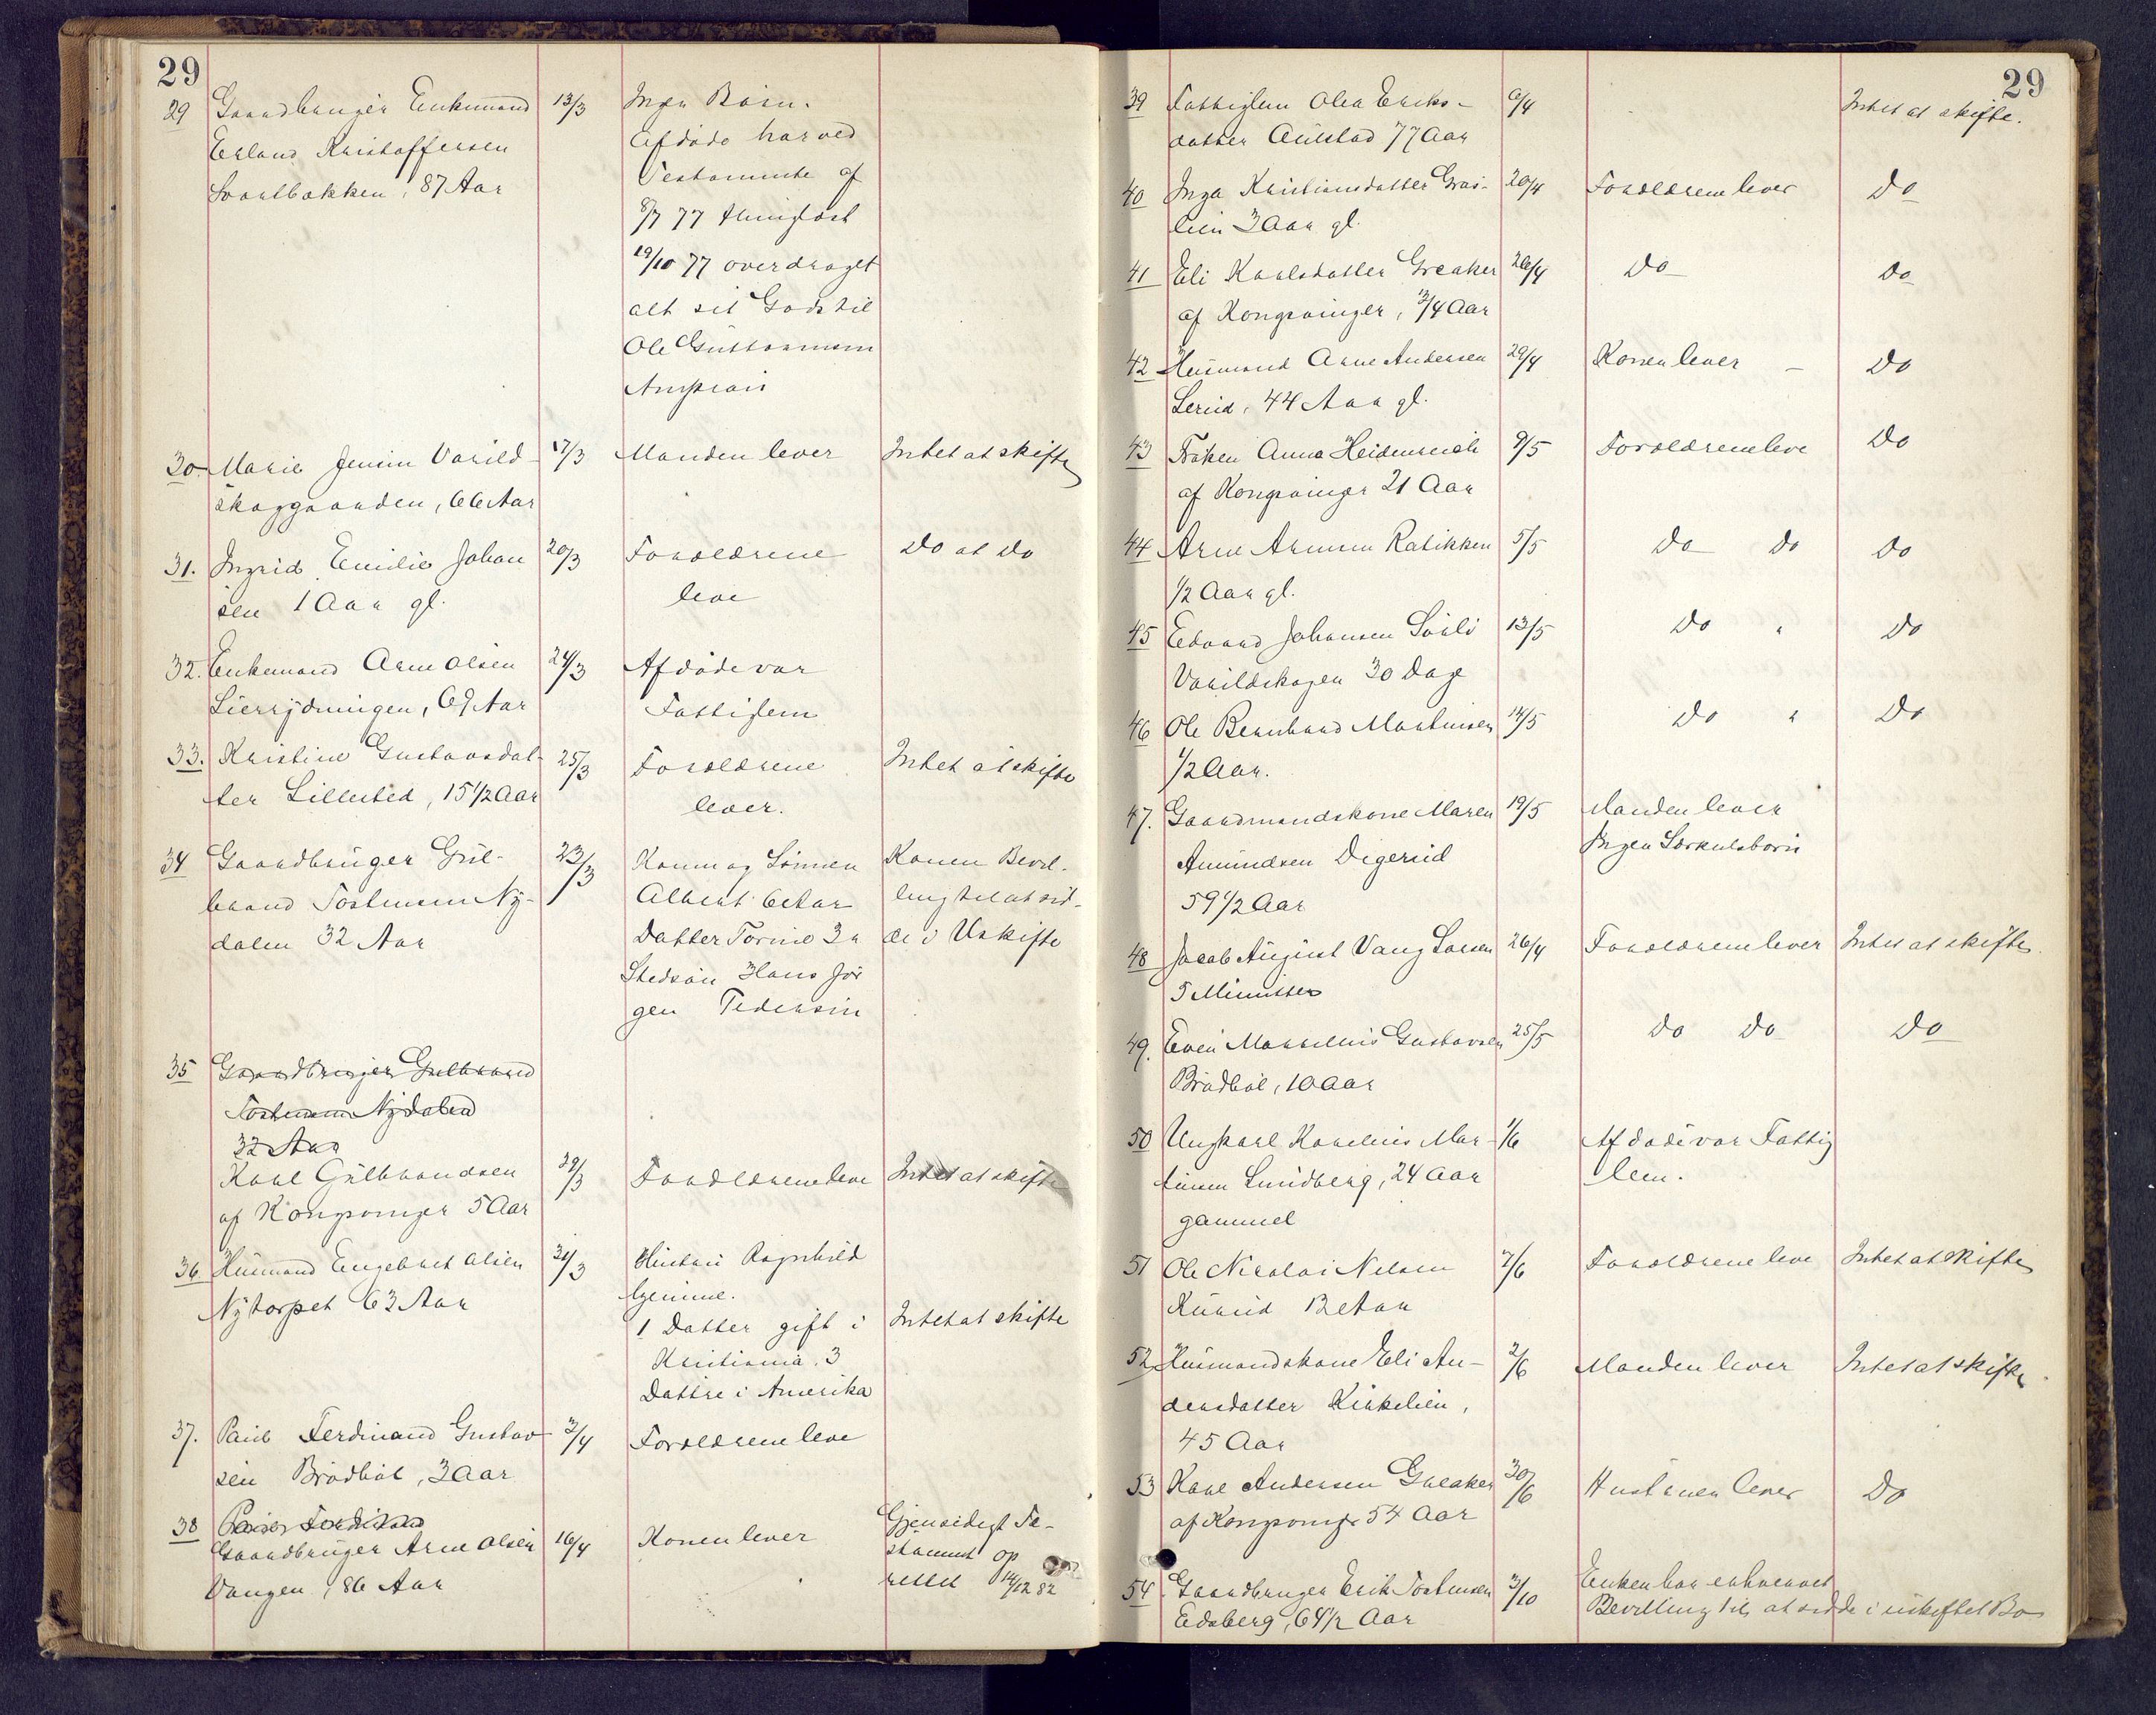 29
29 Gaardbruger Enkemand 13/3 Ingen Börn.
Erland Kristoffersen Afdöde har ved
Svartbakken, 87 Aar Testamente af
8/7 77 thinglæst
19/10 77 overdraget
alt sit Gods til
Ole Guttormsen
30 Marie Jensen Varild- 17/3 Manden lever Intet at skifte
skoggaarden, 66 Aar
31. Ingrid Emilie Johan 20/3 Forældrene Do at do
sen 1 Aar gl. leve
32. Enkemand Arne Olsen 24/3 Afdöde var
Lierrydningen, 69 Aar Fattiglem
33. Kristine Gustavsdat- 25/3 Forældrene Intet at skifte
ter Lillested, 15 1/2 Aar lever.
34 Gaardbruger Gul- 23/3 Konen og Sönnen Konen Bevil-
brand Tostensen Ny- Albert 6 Aar ling til at sid-
dalen 32 Aar Datter Torine 3 a de i Uskifte
Stedsön Hans Jör
gen Pedersen
35 Gaardbruger Gulbrand
Tostensen Nydalen
32 Aar
Karl Gulbrandsen 29/3 Forældrene leve Intet at skifte
af Kongsvinger 5 Aar
36. Husmand Engebret Olsen 31/3 Hustru Ragnhild
Nytorpet 63 Aar hjemme.
1 Datter gift i Intet at skifte
Kristiania. 3
Døttre i Amerika
37. Paul Ferdinand Gustav 2/4 Forældrene leve
sen Brödböl, 3 Aar
38 Paul Ferdinand
Gaardbruger Arne Olsen 16/4 Konen lever Gjensidigt Te-
Vangen, 86 Aar stament op
rettet 14/12 82
29
39 Fattiglem Olea Eriks- 6/4 Intet at skifte.
datter Aulstad 77 Aar
40 Inga Kristiansdatter Gras- 20/4 Forældrene lever Do
lien 3 Aar gl.
41 Eli Karlsdatter Greaker 26/4 Do Do
af Kongsvinger, 3/4 Aar
42 Husmand Arne Andersen 29/4 Konen lever - Do
Lerud, 44 Aar gl.
43 Fröken Anna Heidenreich 9/5 Forældrene leve Do
af Kongsvinger 21 Aar
44 Arne Arnesen Ratikken 5/5 Do Do Do
1/2 Aar gl.
45 Edvard Johansen Sörli 13/5 Do " Do
Varildskogen 30 Dage
46 Ole Bernhard Martinsen 14/5 Do " Do
1/2 Aar.
47. Gaardmandskone Maren 19/5 Manden lever
Amundsen Digerud Ingen Særkulsbörn
59 1/2 Aar
48 Jacob August Vang Larsen 26/4 Forældrene lever Intet at skifte
5 Minutter
49. Even Marselius Gustavsen 25/5 Do Do Do
Brödböl, 10 Aar
50 Ungkarl Karelius Mar- 1/6 Afdöde var Fattig
tinsen Lundberg, 24 Aar lem.
gammel
51 Ole Nicolai Nilsen 7/6 Forældrene leve Intet at skifte
Rûnud 12 Aar
52 Husmandskone Eli An- 2/6 Manden lever Intet at skifte
dersdatter Kirkelien,
45 Aar
53 Karl Andersen Greaker 30/6 Hustruen lever Do
af Kongsvinger 54 Aar
54 Gaardbruger Erik Tostensen 3/10 Enken har erhvervet
Edsberg, 64 1/2 Aar Bevilling til at sidde i uskiftet Bo